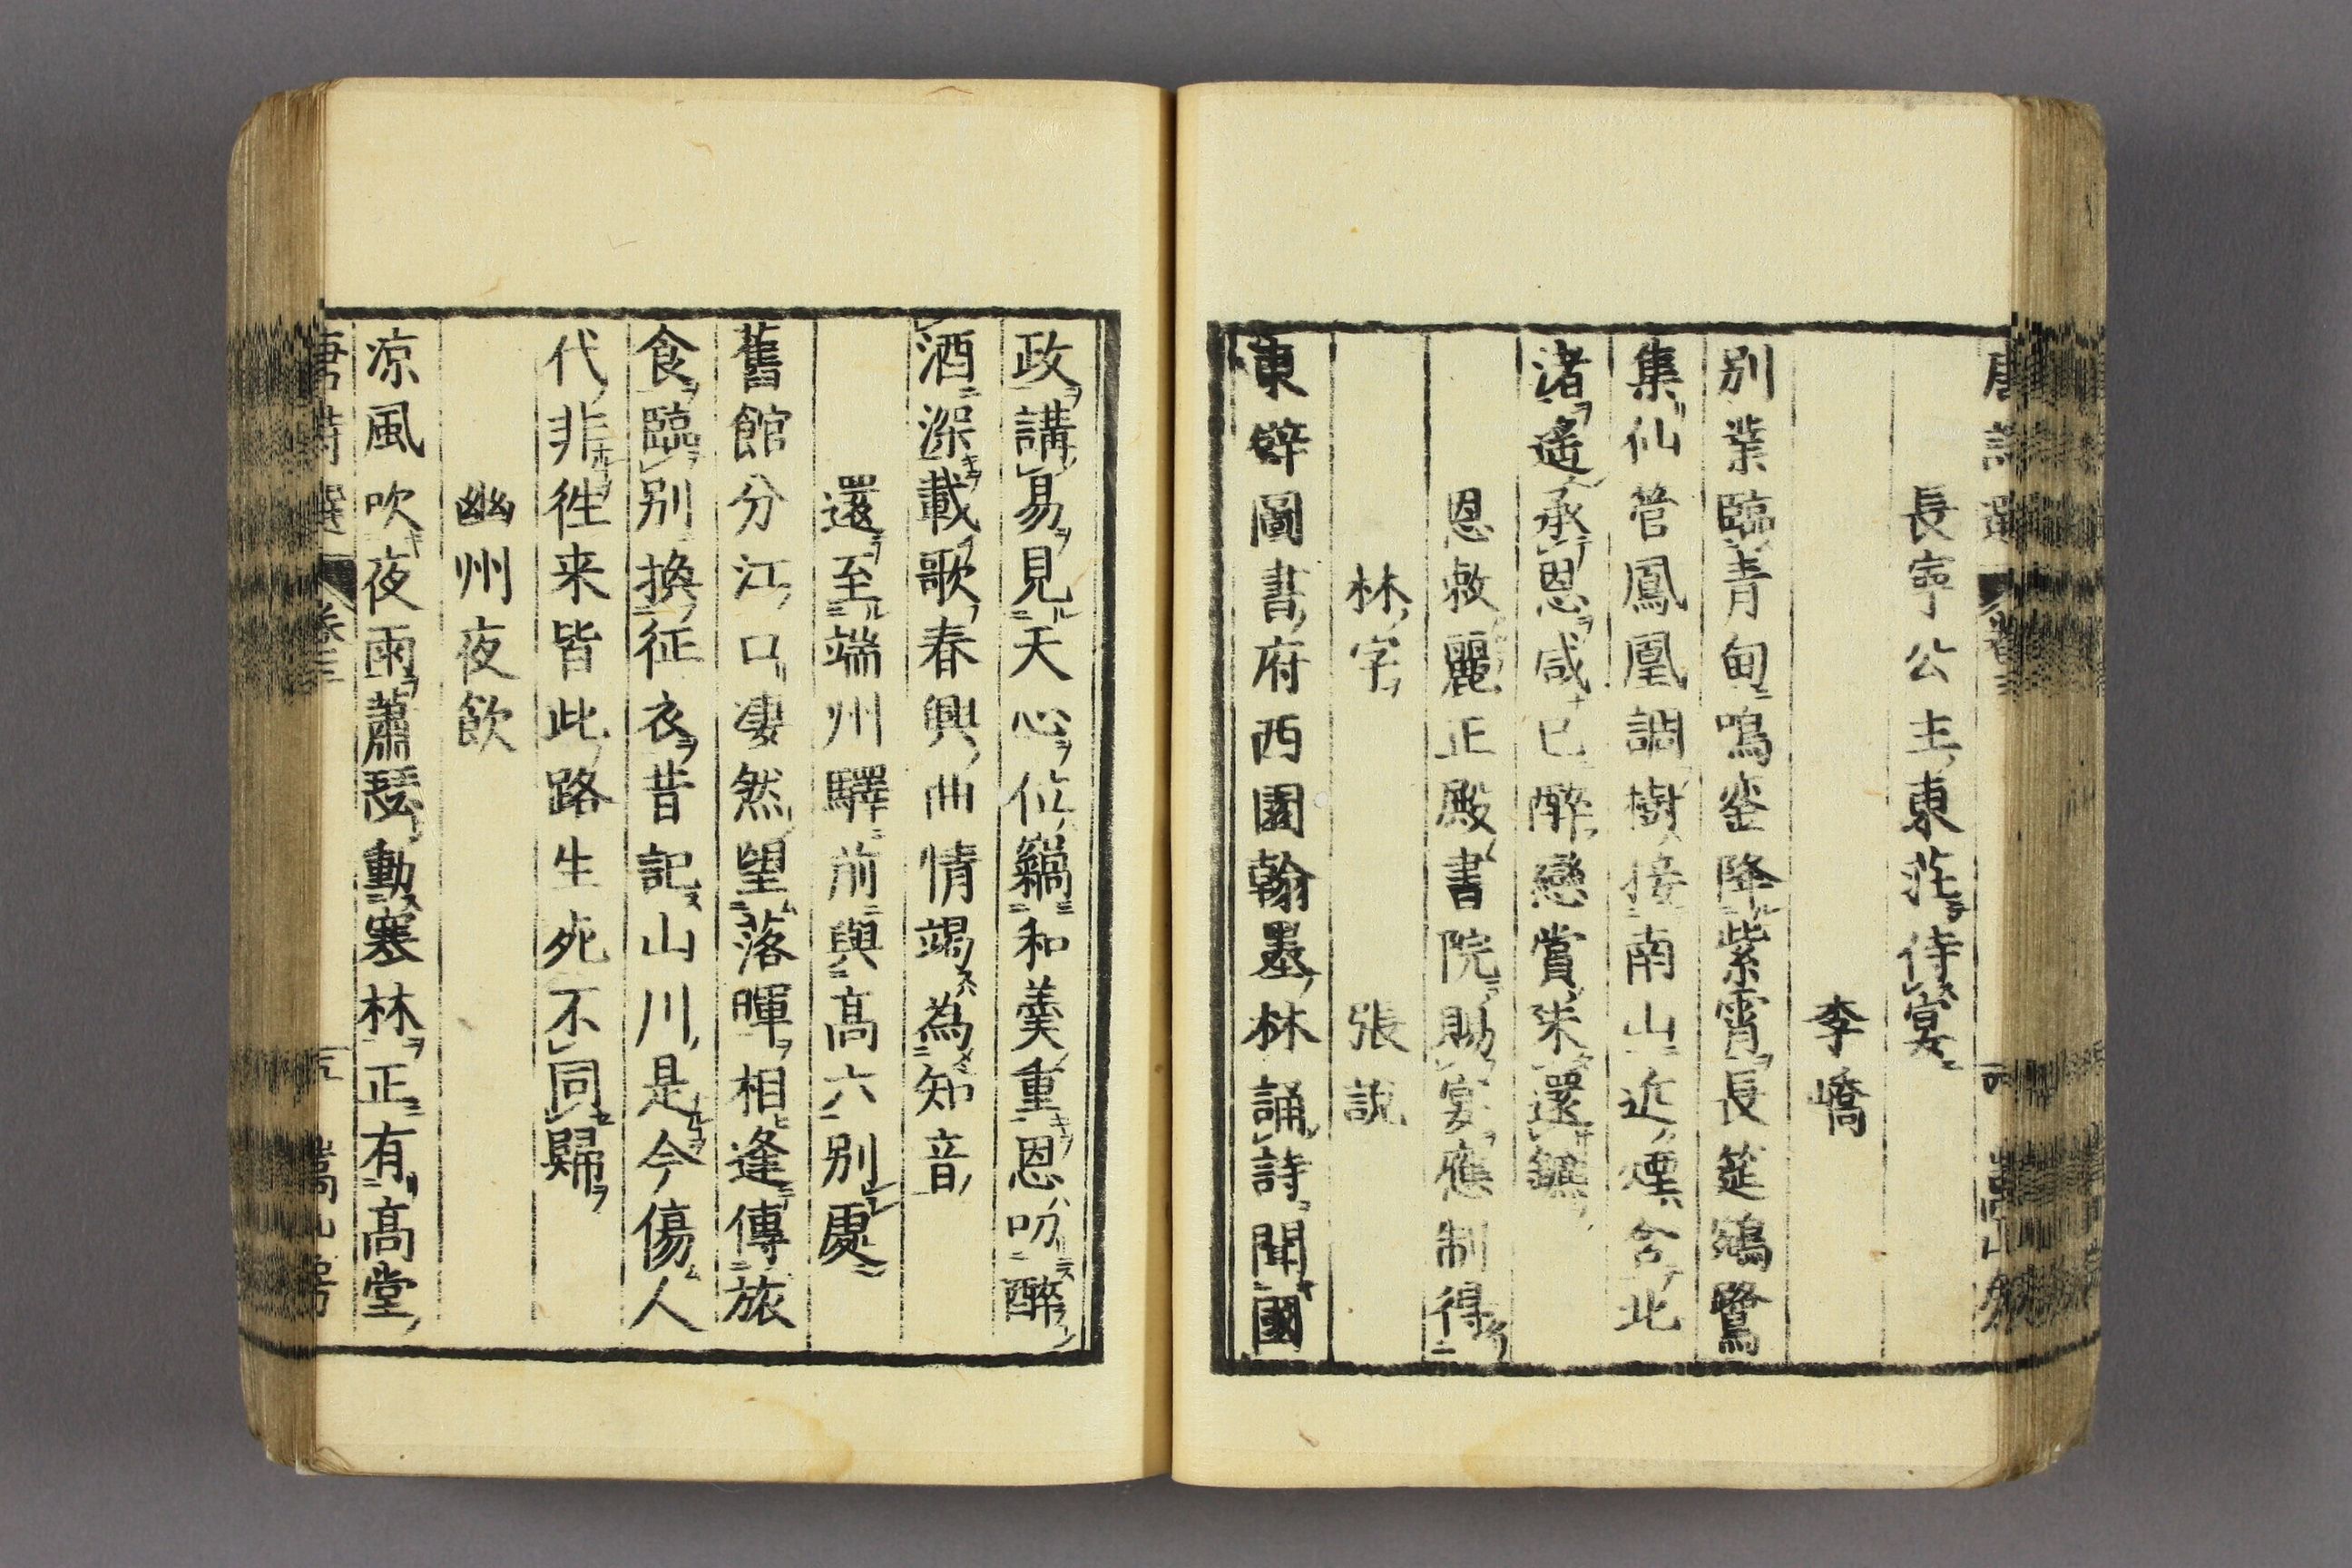 唐詩選 卷三 嵩山房
長寧公主東莊侍宴
李嶠
別業臨青甸鳴鑾降紫霄長筵鵷鷺
集仙管鳳凰調樹接南山近煙含北
渚遙承恩咸已醉戀賞未還鑣
恩敕麗正殿書院賜宴應制得
林字 張說
東壁圖書府西園翰墨林誦詩聞國
政講易見天心位竊和羹重恩叨醉
酒深載歌春興曲情竭為知音
還至端州驛前與高六別處
舊館分江口凄然望落暉相逢傳旅
食臨別換征衣昔記山川是今傷人
代非徃来皆此路生死不同歸
幽州夜飲
凉風吹夜雨蕭瑟動寒林正有高堂
唐詩選 卷三 嵩山房